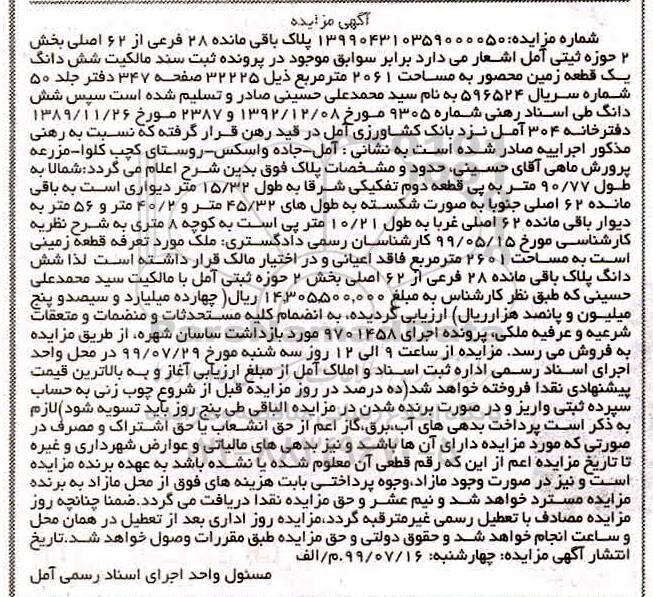 آگهی مزایده
شماره مزایده:۱۳۹۹۰۴۳۱۰۳۵۹۰۰۰۰۵۰ پلاک باقی مانده ۲۸ فرعی از ۶۲ اصلی بخش
۲ حوزه ثبتی آمل اشعار می دارد برابر سوابق موجود در پرونده ثبت سند مالکیت شش دانگ
یک قطعه زمین محصور به مساحت ۲۰۶۱ مترمربع ذیل ۳۲۲۲۵ صفحه ۳۴۷ دفتر جلد ۵۰
شماره سریال ۵۹۶۵۲۴ به نام سید محمدعلی حسینی صادر و تسلیم شده است سپس شش
دانگ طی اسناد رهنی شماره ۹۳۰۵ مورخ ۱۳۹۲/۱۲/۰۸ و ۲۳۸۷ مورخ ۱۳۸۹/۱۱/۲۶
دفترخانه ۳۰۴ آمل نزد بانک کشاورزی آمل در قید رهن قرار گرفته که نسبت به رهنی
مذکور اجراییه صادر شده است. به نشانی : آمل-جاده واسکس-روستای کچب کلوا-مزرعه
پرورش ماهی آقای حسینی، حدود و مشخصات پلاک فوق بدین شرح اعلام می گردد:شمالا به
طول ۹۰/۷۷ متر به پی قطعه دوم تفکیکی شرقا به طول ۱۵/۳۲ متر دیواری است به باقی
مانده ۶۲ اصلی جنوبا به صورت شکسته به طول های ۴۵/۳۲ متر و ۴۰/۲ متر و ۵۶ متر به
دیوار باقی مانده ۶۲ اصلی غربا به طول ۱۰/۲۱ متر پی است به کوچه ۸ متری به شرح نظریه
کارشناسی مورخ ۹۹/۰۵/۱۵ کارشناسان رسمی دادگستری: ملک مورد تعرفه قطعه زمینی
است به مساحت ۲۶۰۱ مترمربع فاقد اعیانی و در اختیار مالک قرار داشته است لذا شش
دانگ پلاک باقی مانده ۲۸ فرعی از ۶۲ اصلی بخش ۲ حوزه ثبتی آمل با مالکیت سید محمدعلی
حسینی که طبق نظر کارشناس به مبلغ ۱۴,۳۰۵,۵۰۰,۰۰۰ ریال( چهارده میلیارد و سیصدو پنج
میلیون و پانصد هزارریال) ارزیابی گردیده، به انضمام کلیه مستحدثات و منضمات و متعقات
شرعیه و عرفیه ملکی، پرونده اجرای ۹۷۰۱۴۵۸ مورد بازداشت ساسان شهره، از طریق مزایده
به فروش می رسد. مزایده از ساعت ۹ الی ۱۲ روز سه شنبه مورخ ۹۹/۰۷/۲۹ در محل واحد
اجرای اسناد رسمی اداره ثبت اسناد و املاک آمل از مبلغ ارزیابی آغاز و به بالاترین قیمت
پیشنهادی نقدا فروخته خواهد شد(ده درصد در روز مزایده قبل از شروع چوب زنی به حساب
سپرده ثبتی واریز و در صورت برنده شدن در مزایده الباقی طی پنج روز باید تسویه شود)لازم
به ذکر است پرداخت بدهی های آب،برق،گاز اعم از حق انشعاب یا حق اشتراک و مصرف در
صورتی که مورد مزایده دارای آن ها باشد و نیز بدهی های مالیاتی و عوارض شهرداری و غیره
تا تاریخ مزایده اعم از این که رقم قطعی آن معلوم شده یا نشده باشد به عهده برنده مزایده
است و نیز در صورت وجود مازاد،وجوه پرداختی بابت هزینه های فوق از محل مازاد به برنده
مزایده مسترد خواهد شد و نیم عشر و حق مزایده نقدا دریافت می گردد.ضمنا چنانچه روز
مزایده مصادف با تعطیل رسمی غیرمترقبه گردد،مزایده روز اداری بعد از تعطیل در همان محل
و ساعت انجام خواهد شد و حقوق دولتی و حق مزایده طبق مقررات وصول خواهد شد.تاریخ
انتشار آگهی مزایده: چهارشنبه: ۹۹/۰۷/۱۶.م/الف
مسئول واحد اجرای اسناد رسمی آمل